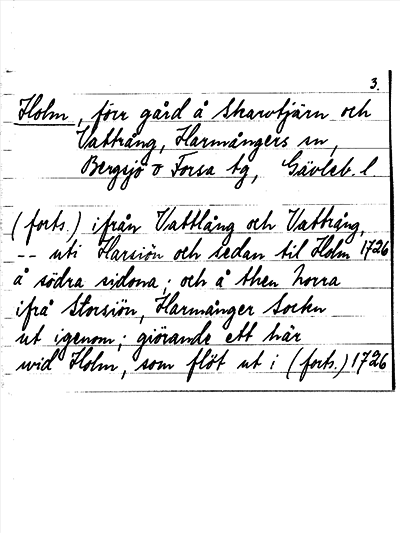 3.
Holm, förr gård å Skarvtjärn och
Vattrång, Harmångers sn,
Bergsjö o Forsa tg, Gävleb. l
(forts.) ifrån Vattlång och Vattrång,
-- uti Harsiön och sedan til Holm 1726
å södra sidona; och å then norra
ifrå Storsiön, Harmånger Sockn
ut igenom; giörande ett när
wid Holm, som flöt ut i (forts.) 1726